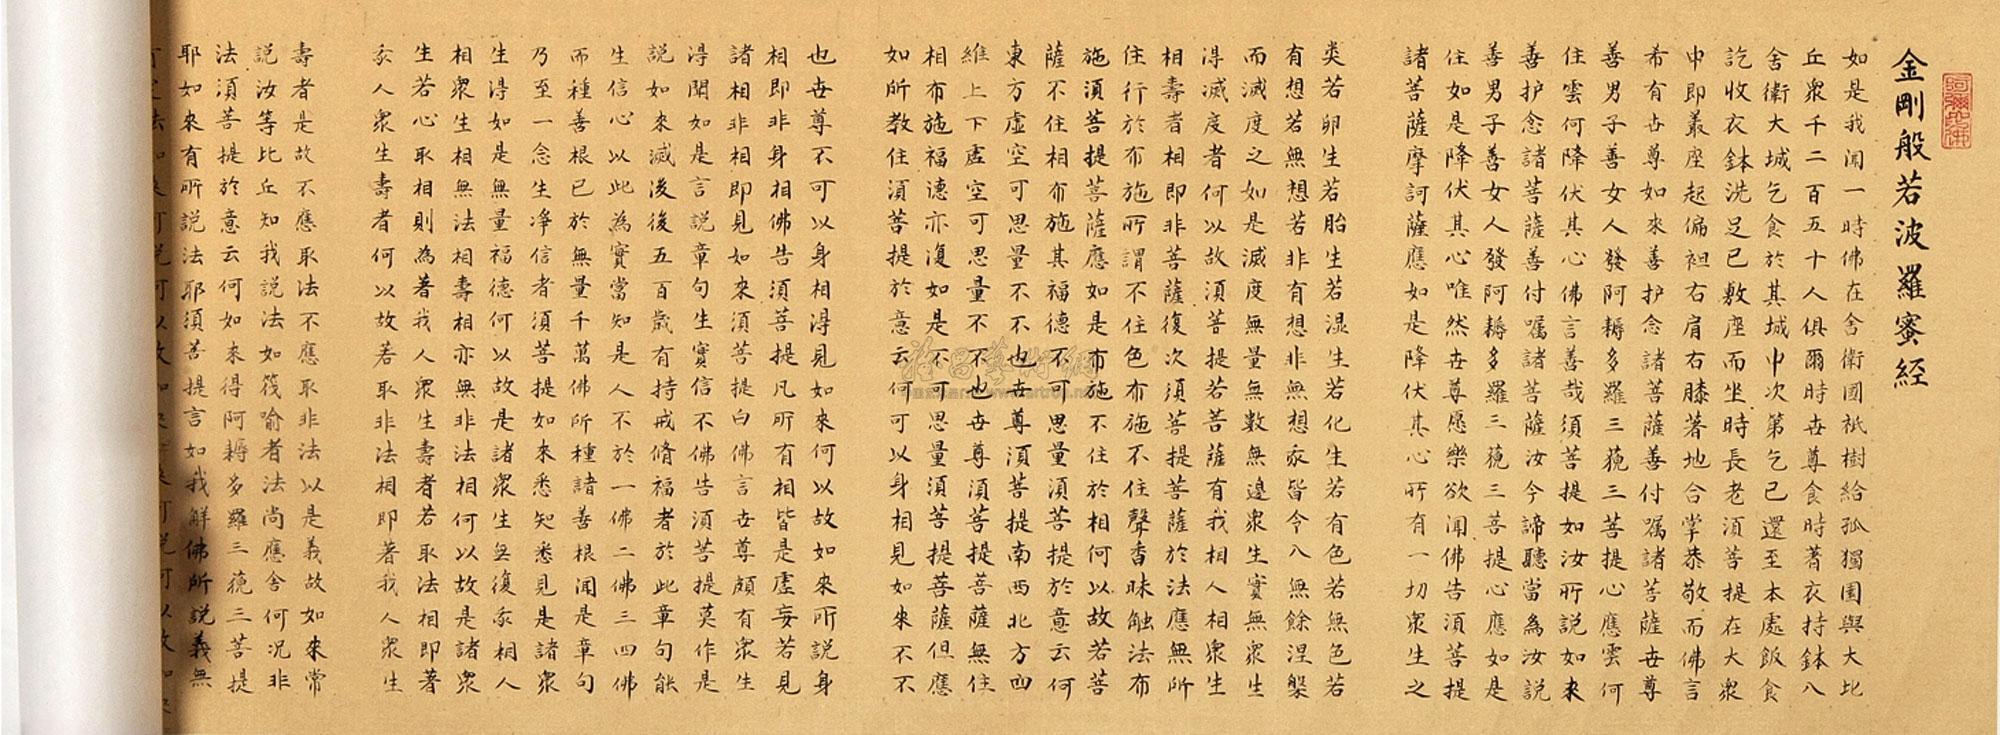 阿彌陀佛
金剛般若波羅蜜經
如是我闻一時佛在舍衛國祇樹給孤獨園與大比
丘眾千二百五十人俱爾時世尊食時著衣持鉢入
舍衛大城乞食於其城中次第乞已還至本處飯食
訖收衣鉢洗足已敷座而坐時長老須菩提在大眾
中即叢座起偏袒右肩右膝著地合掌恭敬而佛言
希有世尊如來善护念諸菩薩善付嘱諸菩薩世尊
善男子善女人發阿耨多羅三藐三菩提心應雲何
住雲何降伏其心佛言善哉須菩提如汝所説如来
善护念諸菩薩善付囑諸菩薩汝今諦聽當為汝説
善男子善女人發阿耨多羅三藐三菩提心應如是
住如是降伏其心唯然世尊愿樂欲闻佛告須菩提
諸菩薩摩訶薩應如是降伏其心所有一切眾生之
类若卵生若胎生若湿生若化生若有色若無色若
有想若無想若非有想非無想我皆令入無餘涅槃
而滅度之如是滅度無量無數無邊眾生實無眾生
得滅度者何以故須菩提若菩薩有我相人相眾生
相壽者相即非菩薩復次須菩提菩薩於法應無所
住行於布施所謂不住色布施不住聲香味触法布
施須菩提菩薩應如是布施不住於相何以故若菩
薩不住相布施其福德不可思量須菩提於意云何
東方虛空可思量不不也世尊須菩提南西北方四
維上下虛空可思量不不也世尊須菩提菩薩無住
相布施福德亦復如是不可思量須菩提菩薩但應
如所教住須菩提於意云何可以身相見如來不不
也世尊不可以身相得見如來何以故如來所説身
相即非身相佛告須菩提凡所有相皆是虛妄若見
諸相非相即見如來須菩提白佛言世尊頗有眾生
得聞如是言説章句生實信不佛告須菩提莫作是
説如來滅後後五百歲有持戒脩福者於此章句能
生信心以此為實當知是人不於一佛二佛三四佛
而種善根已於無量千萬佛所種諸善根闻是章句
乃至一念生淨信者須菩提如來悉知悉見是諸眾
生得如是無量福德何以故是諸眾生無復我相人
相眾生相無法相壽相亦無非法相何以故是諸眾
生若心取相則為著我人眾生壽者若取法相即著
我人眾生壽者何以故若取非法相即著我人眾生
壽者是故不應取法不應取非法以是義故如來常
説汝等比丘知我説法如筏喻者法尚應舍何況非
法須菩提於意云何如來得阿耨多羅三藐三菩提
耶如來有所説法耶須菩提言如我解佛所説義無